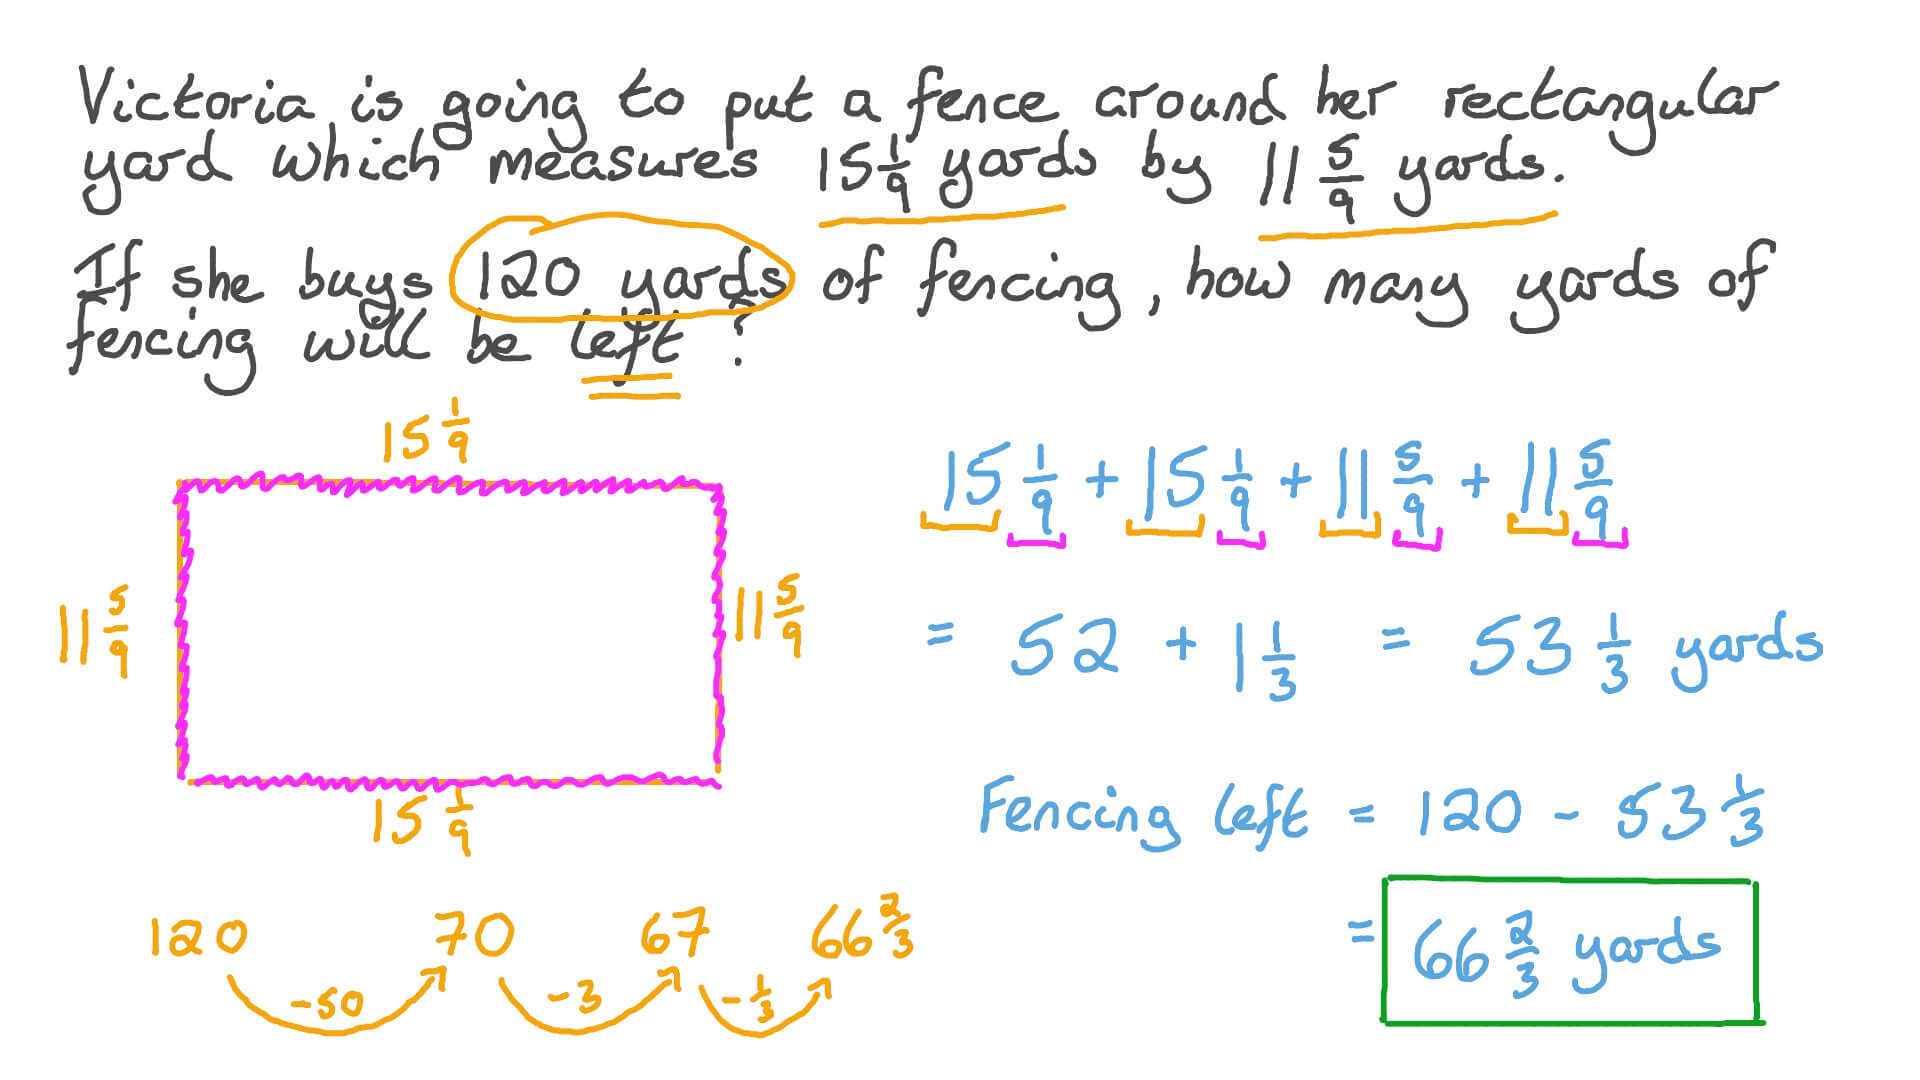 Victoria is going to put a fence around her rectangular
yard which measures 15 1/9 yards by 11 5/9 yards.
If she buys 120 yards of fencing, how many yards of
fencing will be left?
15 1/9
11 5/9
11 5/9
15 1/9
15 1/9 + 15 1/9 + 11 5/9 + 11 5/9
= 52 + 1 1/3 = 53 1/3 yards
Fencing left = 120 - 53 1/3
= 66 2/3 yards
120 70 67 66 2/3
-50 -3 -1/3